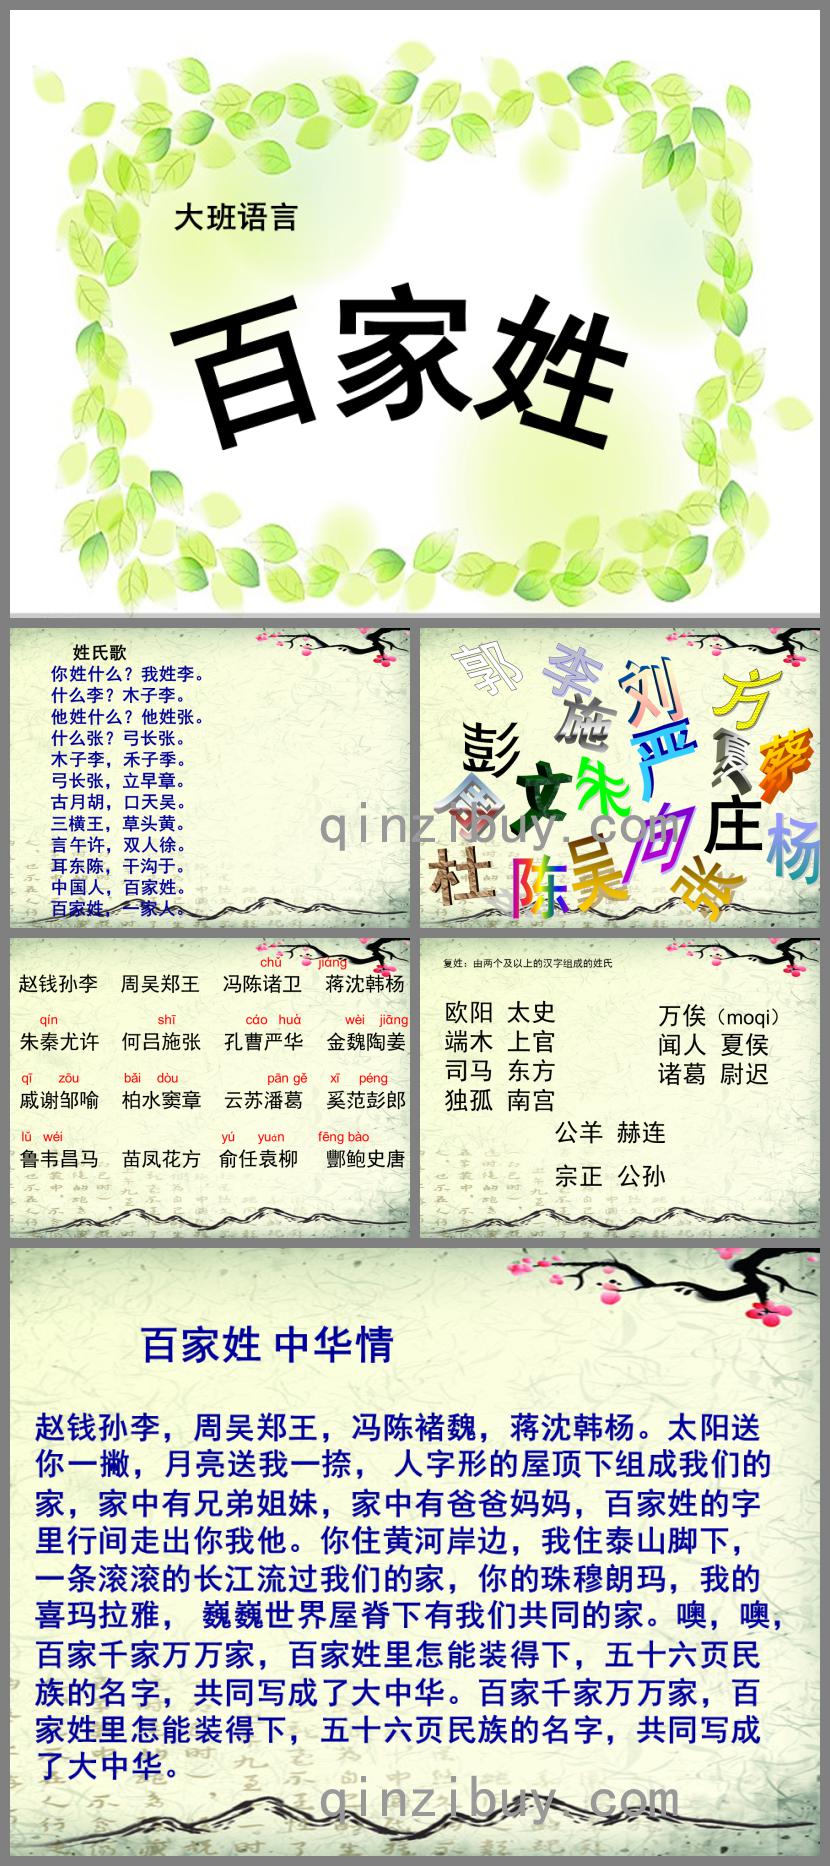 大班语言
百家姓
姓氏歌
你姓什么？我姓李。
什么李？木子李。
他姓什么？他姓张。
什么张？弓长张。
木子李，禾子季。
弓长张，立早章。
古月胡，口天吴。
三横王，草头黄。
言午许，双人徐。
耳东陈，干沟于。
中国人，百家姓。
百家姓，一家人。
郭 李 刘 方
施 严 夏 蔡
彭 文 朱 庄
向 杨
杜 陈 吴 张
qinzibuy.com
chǔ jiǎng
赵钱孙李 周吴郑王 冯陈诸卫 蒋沈韩杨
qín shī cáo huà wèi jiāng
朱秦尤许 何吕施张 孔曹严华 金魏陶姜
qī zōu bǎi dòu pān gě xī péng
戚谢邹喻 柏水窦章 云苏潘葛 奚范彭郎
lǔ wéi yú yuán fēng bào
鲁韦昌马 苗凤花方 俞任袁柳 酆鲍史唐
复姓：由两个及以上的汉字组成的姓氏
欧阳 太史 万俟（moqi）
端木 上官 闻人 夏侯
司马 东方 诸葛 尉迟
独孤 南宫
公羊 赫连
宗正 公孙
百家姓 中华情
赵钱孙李，周吴郑王，冯陈褚魏，蒋沈韩杨。太阳送
你一撇，月亮送我一捺， 人字形的屋顶下组成我们的
家，家中有兄弟姐妹，家中有爸爸妈妈，百家姓的字
里行间走出你我他。你住黄河岸边，我住泰山脚下，
一条滚滚的长江流过我们的家，你的珠穆朗玛，我的
喜玛拉雅， 巍巍世界屋脊下有我们共同的家。噢，噢，
百家千家万万家，百家姓里怎能装得下，五十六页民
族的名字，共同写成了大中华。百家千家万万家，百
家姓里怎能装得下，五十六页民族的名字，共同写成
了大中华。
qinzibuy.com